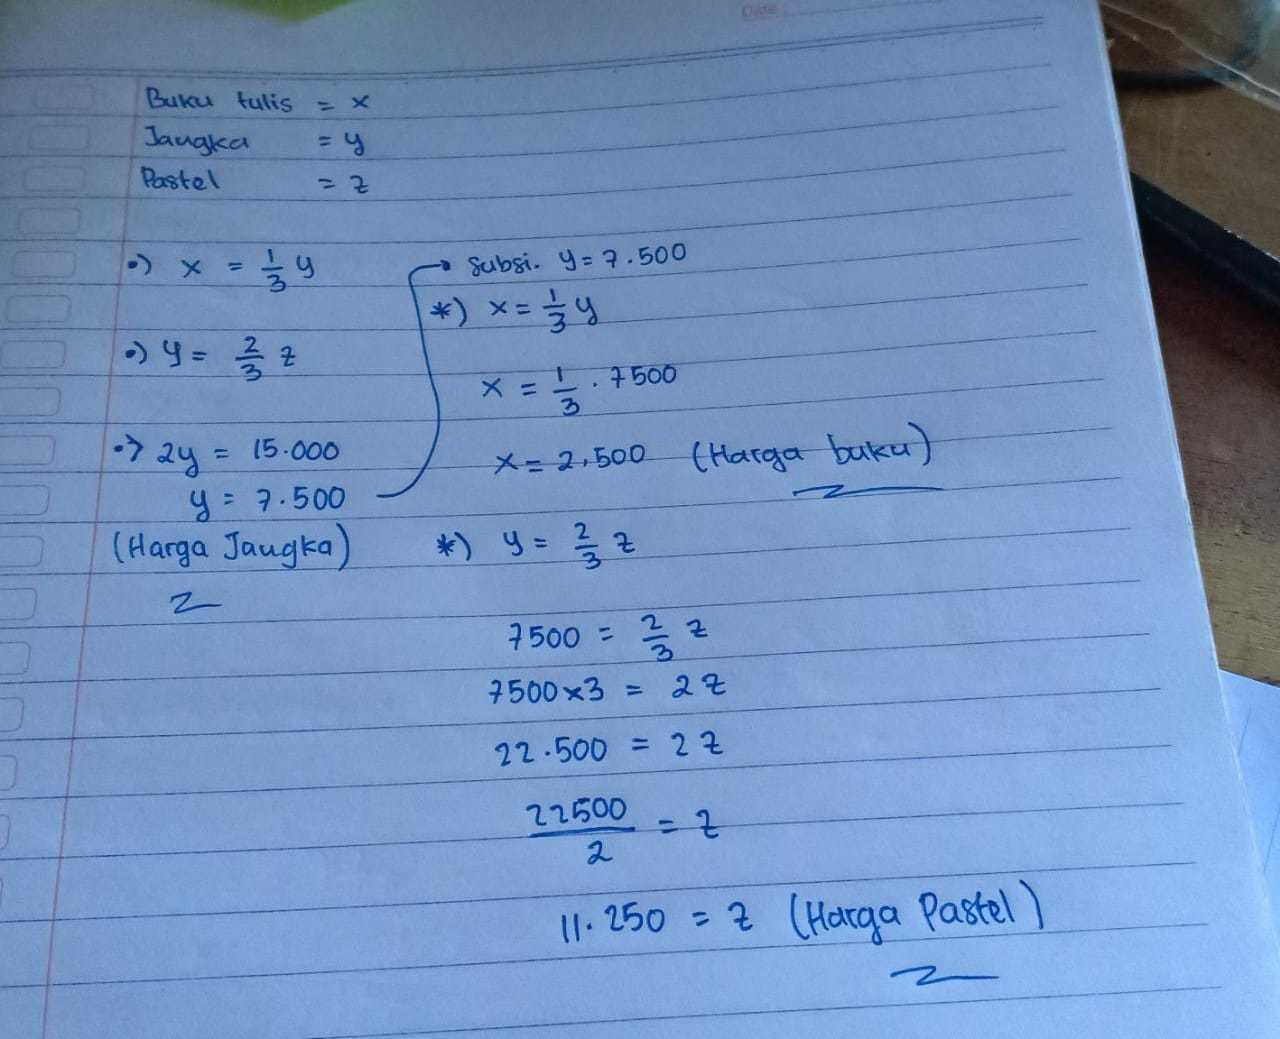 Date:
Buku tulis = x
Jangka = y
Pastel = z
•) x = 1/3 y
•) y = 2/3 z
•) 2y = 15.000
y = 7.500
(Harga Jangka)
→ Subsi. y = 7.500
*) x = 1/3 y
x = 1/3 . 7500
x = 2.500 (Harga buku)
*) y = 2/3 z
7500 = 2/3 z
7500 x 3 = 2z
22.500 = 2z
22500/2 = z
11.250 = z (Harga Pastel)